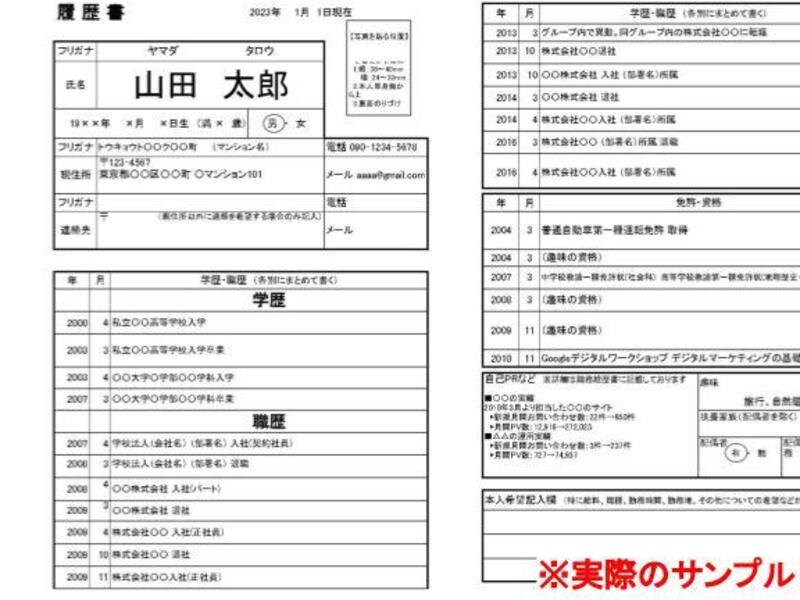 履歴書
2023年 1月 1日現在
フリガナ ヤマダ タロウ
氏名 山田 太郎
19××年 ×月 ×日生 (満 × 歳) 男・女
【写真を貼る位置】
1.縦 36~40mm
横 24~30mm
2.本人単身胸から上
3.裏面のりづけ
フリガナ トウキョウト〇〇ク〇〇町 (マンション名) 電話 090-1234-5678
現住所 〒123-4567
東京都〇〇区〇〇町 〇マンション101 メール aaaa@gmail.com
フリガナ 電話
連絡先 〒 (現住所以外に連絡を希望する場合のみ記入) メール
年 月 学歴・職歴 (各別にまとめて書く)
学歴
2000 4 私立〇〇高等学校入学
2003 3 私立〇〇高等学校入学卒業
2003 4 〇〇大学〇学部〇〇学科入学
2007 3 〇〇大学〇学部〇〇学科卒業
職歴
2007 4 学校法人(会社名) (部署名) 入社(契約社員)
2008 3 学校法人(会社名) (部署名) 退職
2008 4 〇〇株式会社 入社(パート)
2009 3 〇〇株式会社 退社
2009 4 株式会社〇〇 入社(正社員)
2009 10 株式会社〇〇 退社
2009 11 株式会社〇〇入社(正社員)
年 月 学歴・職歴 (各別にまとめて書く)
2013 3 グループ内で異動。同グループ内の株式会社〇〇に転籍
2013 10 株式会社〇〇退社
2013 10 〇〇株式会社 入社 (部署名)所属
2014 3 〇〇株式会社 退社
2014 4 株式会社〇〇入社 (部署名)所属
2016 3 株式会社〇〇 (部署名)所属 退職
2016 4 株式会社〇〇入社 (部署名)所属
年 月 免許・資格
2004 3 普通自動車第一種運転免許 取得
2004 3 (趣味の資格)
2007 3 中学校教諭一種免許状(社会科) 高等学校教諭第一種免許状(地理歴史・
2008 3 (趣味の資格)
2009 11 (趣味の資格)
2010 11 Googleデジタルワークショップ デジタルマーケティングの基礎
自己PRなど ※詳細は職務経歴書に記載しております
■〇〇の実績
2018年3月より担当した〇〇のサイト
▶新規月間お問い合わせ数:22件→650件
▶月間PV数:12,916→272,023
■△△の運用実績
▶新規月間お問い合わせ数:3件→237件
▶月間PV数:727→74,657
趣味
旅行、自然
扶養家族(配偶者を除く)
配偶者
有・無
本人希望記入欄 (特に給料、職種、勤務時間、勤務地、その他についての希望などが
※実際のサンプル